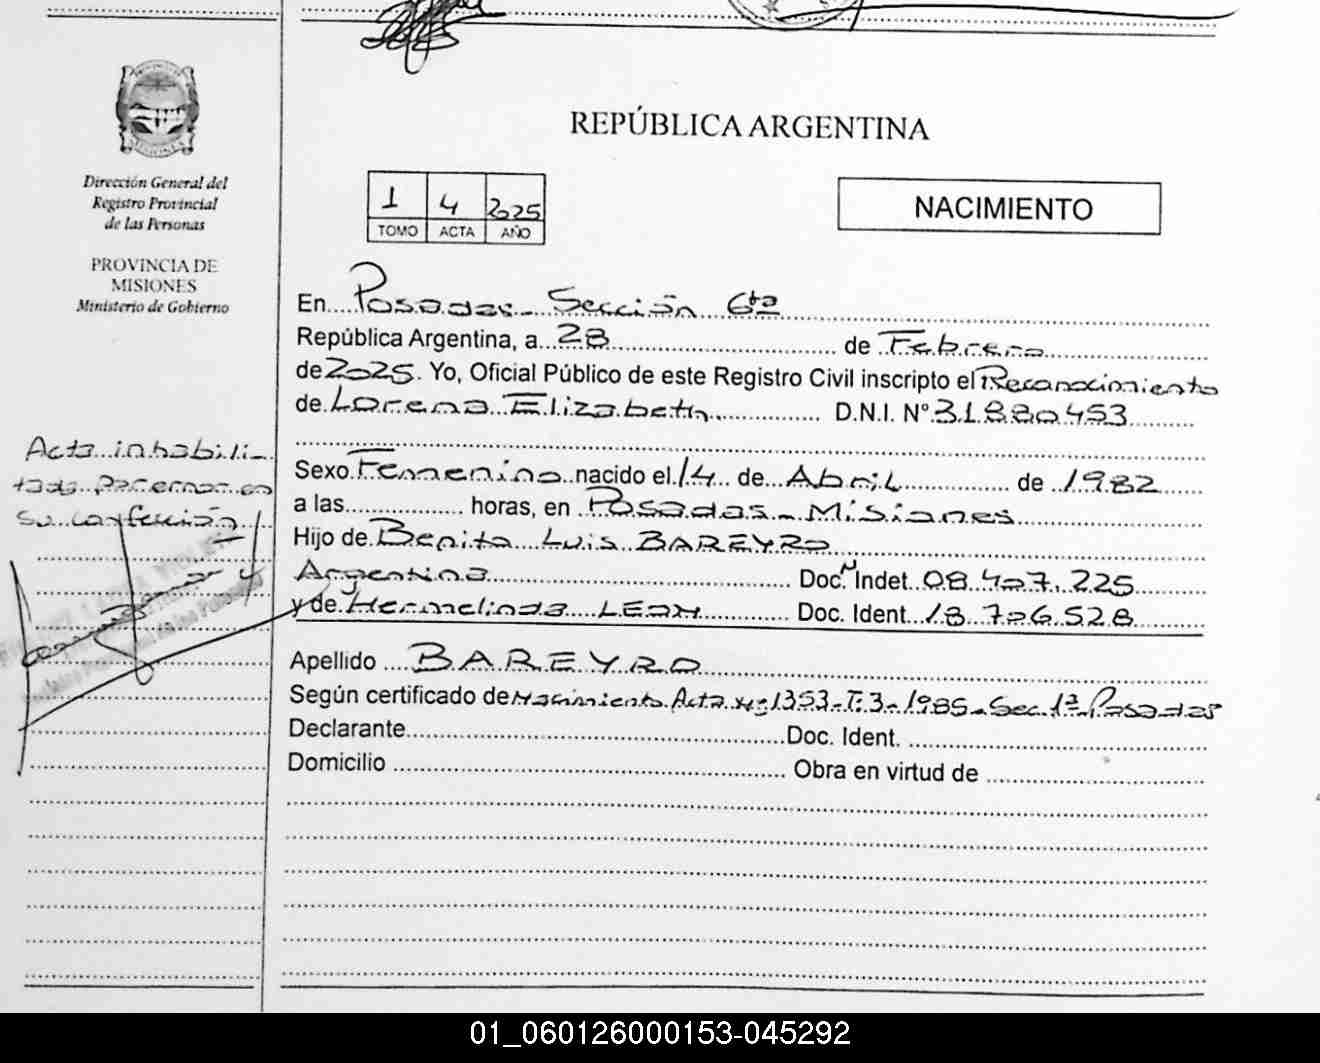 REPÚBLICA ARGENTINA
MISIONES
Dirección General del
Registro Provincial
de las Personas
PROVINCIA DE
MISIONES
Ministerio de Gobierno
1 4 2025
TOMO ACTA AÑO
NACIMIENTO
En Posadas - Sección 6ta
República Argentina, a 28 de Febrero
de 2025. Yo, Oficial Público de este Registro Civil inscripto el Reconocimiento
de Lorena Elizabeth D.N.I. N° 31.880.453
Sexo Femenino nacido el 14 de Abril de 1982
a las horas, en Posadas - Misiones
Hijo de Benito Luis BAREYRO
Argentina Doc. Indet. 08.407.225
y de Hermelinda LEON Doc. Ident. 18.706.528
Apellido BAREYRO
Según certificado de Nacimiento Acta Nº 1353-T:3-1985-Sec. 1ª Posadas
Declarante Doc. Ident.
Domicilio Obra en virtud de
Acta inhabili-
tada por error en
su confección
01_060126000153-045292